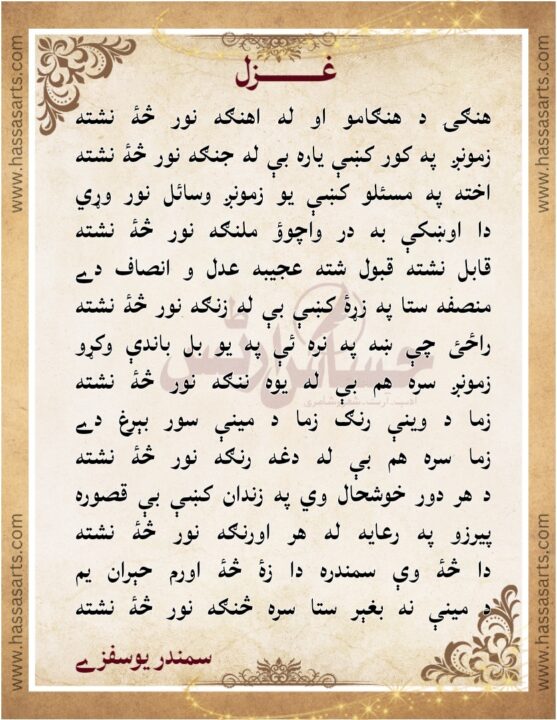 غـــــزل
هنګی د هنګامو او له اهنګه نور څۀ نشته
زمونږ په کور کښې یاره بې له جنګه نور څۀ نشته
اخته په مسئلو کښې یو زمونږ وسائل نور وړي
دا اوښکې به در واچوؤ ملنګه نور څۀ نشته
قابل نشته قبول شته عجیبه عدل و انصاف دے
منصفه ستا په زړۀ کښې بې له زنګه نور څۀ نشته
راځئ چې ښه په نره ئې په یو بل باندې وکړو
زمونږ سره هم بې له یوه ننګه نور څۀ نشته
زما د وینې رنګ زما د مینې سور بېرغ دے
زما سره هم بې له دغه رنګه نور څۀ نشته
د هر دور خوشحال وي په زندان کښې بې قصوره
پیرزو په رعایه له هر اورنګه نور څۀ نشته
دا څۀ وې سمندره دا زۀ څۀ اورم حېران یم
د مینې نه بغېر ستا سره څنګه نور څۀ نشته
سمندر یوسفزے
حساس آرٹس
ادب، آرٹ، شعر و شاعری
www.hassasarts.com
www.hassasarts.com
www.hassasarts.com
www.hassasarts.com